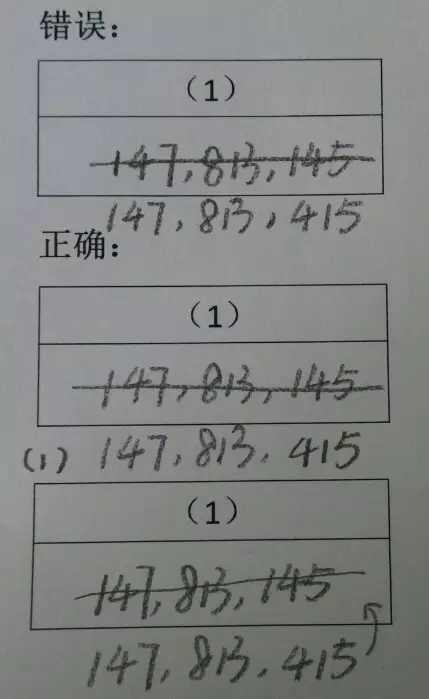 错误：
（1）
147，813，145
147，813，415
正确：
（1）
147，813，145
(1) 147，813，415
（1）
147，813，145
147，813，415